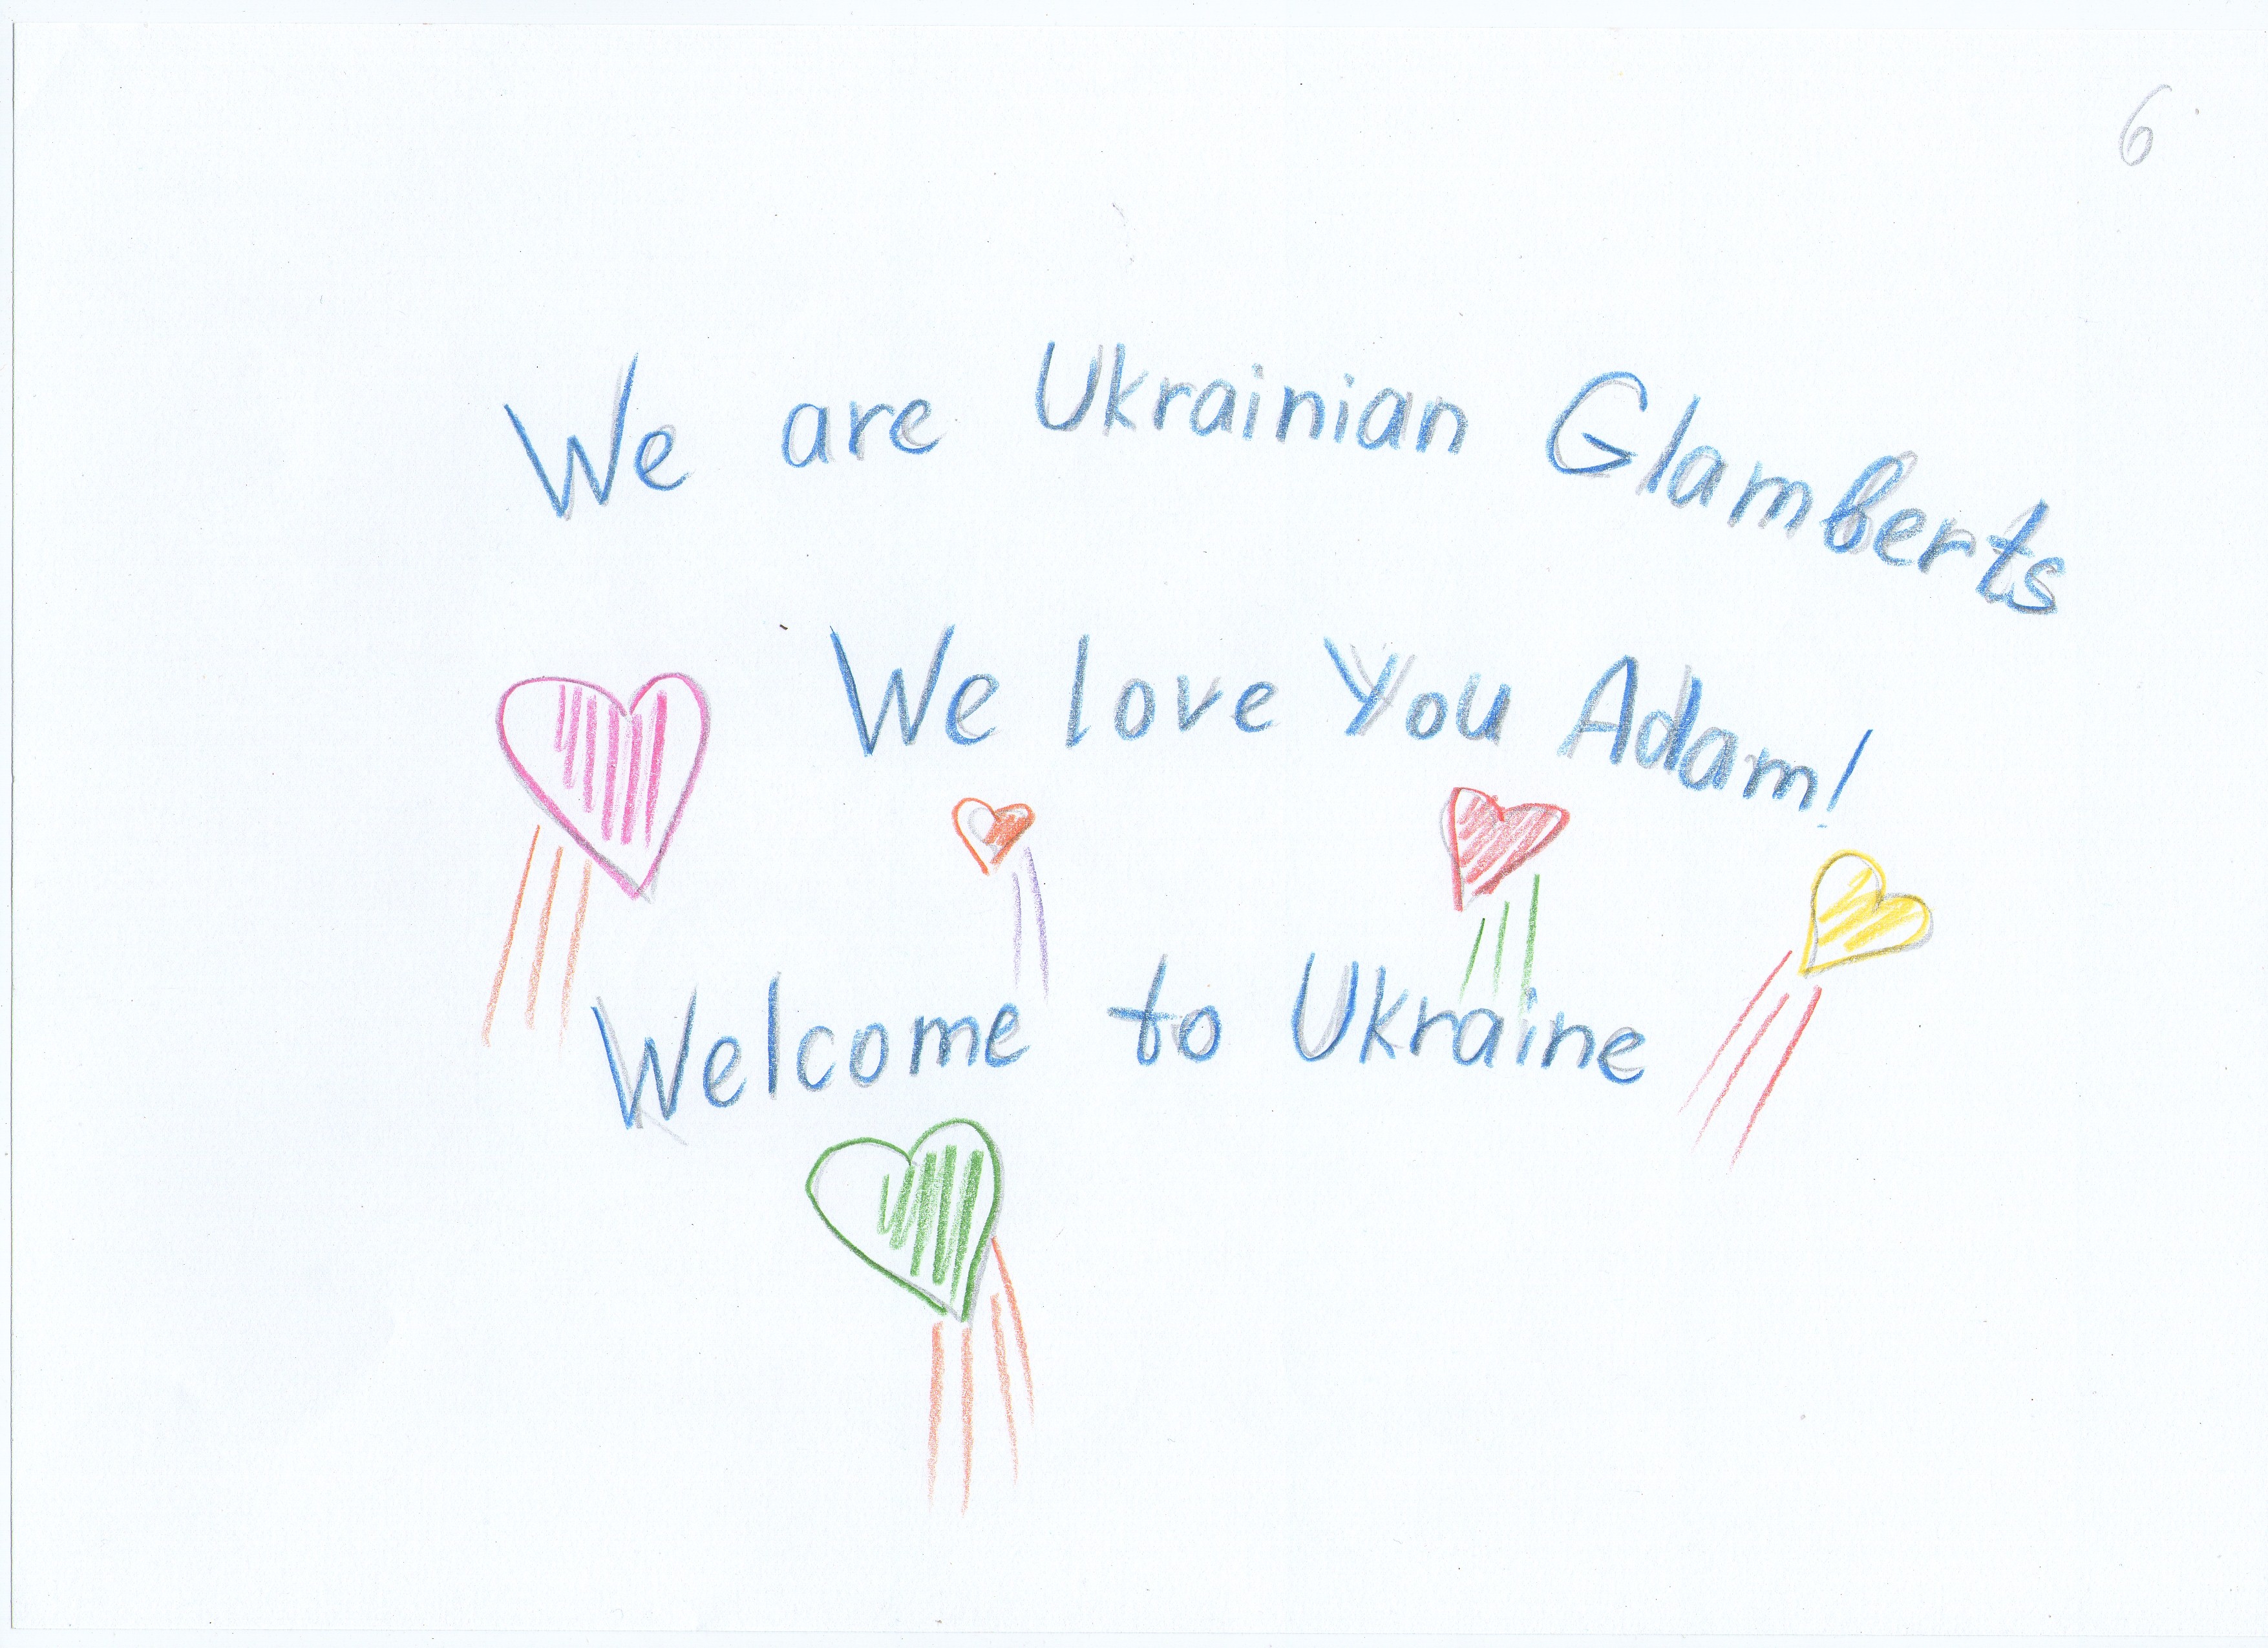 6
We are Ukrainian Glamberts
We love You Adam!
Welcome to Ukraine